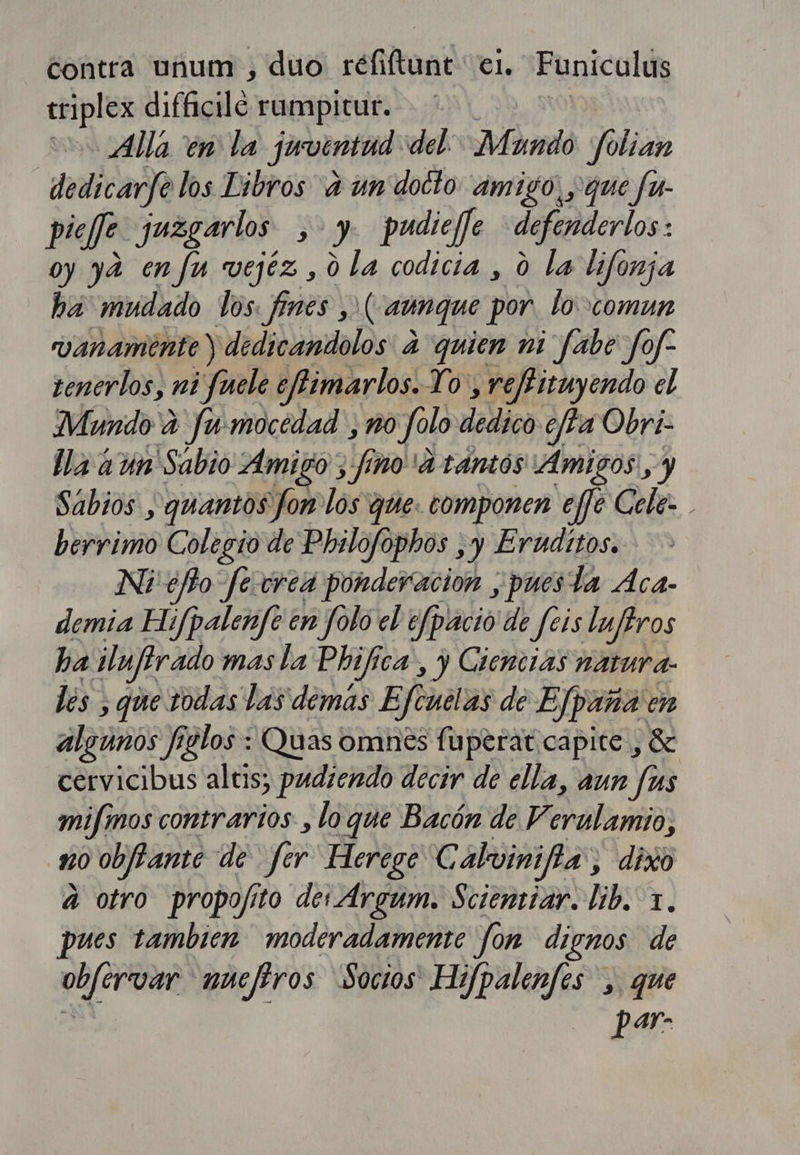 contra unum , duo réſiſtunt ei. Funiculus
triplex difficilè rumpitur.
Allà en la juventud del Mundo ſolian
dedicarſe los Libros à un docto amigo , que ſu-
pieſſe juzgarlos , y pudieſſe defenderlos:
oy yà en ſu vejéz , ò la codicia , ò la liſonja
ha mudado los fines , ( aunque por lo comun
vanamente ) dedicandolos à quien ni ſabe ſoſ-
tenerlos, ni ſuele eſtimarlos. Yo , reſtituyendo el
Mundo à ſu mocedad , no ſolo dedico eſta Obri-
lla à un Sabio Amigo ; ſino à tantos Amigos , y
Sábios , quantos ſon los que componen eſſe Cele-
berrimo Colegio de Philoſophos , y Eruditos.
Ni eſto ſe crea ponderacion , pues la Aca-
demia Hiſpalenſe en ſolo el eſpacio de ſeis luſtros
ha iluſtrado mas la Phiſica , y Ciencias natura-
les , que todas las demás Eſcuelas de Eſpaña en
algunos ſiglos : Quas omnes ſuperat capite , &
cervicibus altis; pudiendo decir de ella, aun ſus
miſmos contrarios , lo que Bacón de Verulamio,
no obſtante de ſer Herege Calviniſta , dixo
à otro propoſito de Argum. Scientiar. lib. 1.
pues tambien moderadamente ſon dignos de
obſervar nueſtros Socios Hiſpalenſes , que
par-